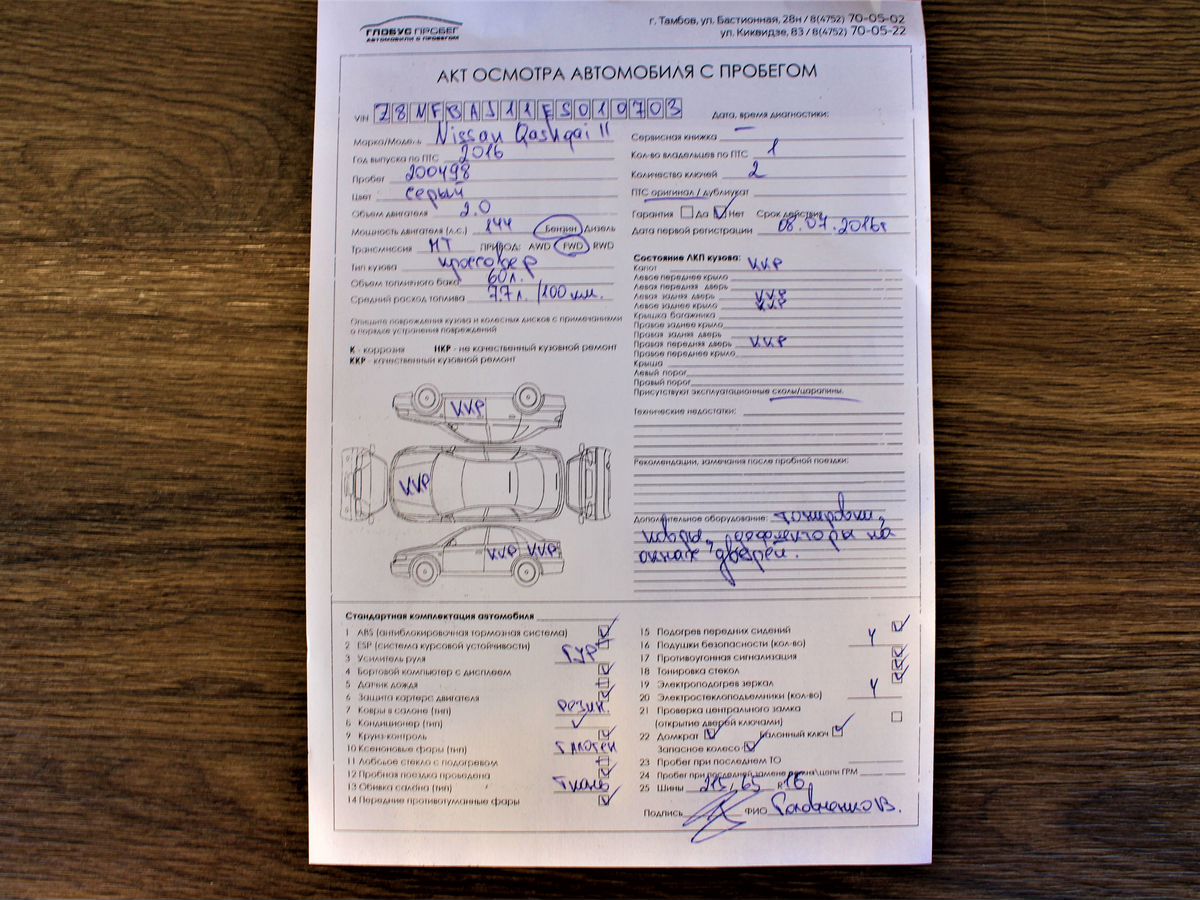 ГЛОБУС ПРОБЕГ
АВТОМОБИЛИ С ПРОБЕГОМ
г. Тамбов, ул. Бастионная, 28н / 8(4752) 70-05-02
ул. Киквидзе, 83 / 8(4752) 70-05-22
АКТ ОСМОТРА АВТОМОБИЛЯ С ПРОБЕГОМ
VIN Z8NFBAJ11ES010703
Марка/Модель Nissan Qashqai II
Год выпуска по ПТС 2016
Пробег 200498
Цвет серый
Объем двигателя 2.0
Мощность двигателя (л.с.) 144 Бензин Дизель
Трансмиссия МТ ПРИВОД: AWD FWD RWD
Тип кузова кроссовер
Объем топливного бака 60л.
Средний расход топлива 7.7 л. /100 км.
Опишите повреждения кузова и колесных дисков с примечаниями
о порядке устранения повреждений
К - коррозия НКР - не качественный кузовной ремонт
ККР - качественный кузовной ремонт
ККР
ККР
ККР ККР
Дата, время диагностики:
Сервисная книжка —
Кол-во владельцев по ПТС 1
Количество ключей 2
ПТС оригинал / дубликат
Гарантия Да Нет Срок действия
Дата первой регистрации 08.07.2016г
Состояние ЛКП кузова:
Капот ККР
Левое переднее крыло
Левая передняя дверь
Левая задняя дверь ККР
Левое заднее крыло ККР
Крышка багажника
Правое заднее крыло
Правая задняя дверь
Правая передняя дверь ККР
Правое переднее крыло
Крыша
Левый порог
Правый порог
Присутствуют эксплуатационные сколы/царапины.
Технические недостатки:
Рекомендации, замечания после пробной поездки:
Дополнительное оборудование: тонировка,
ковры, дефлекторы на
окнах дверей.
Стандартная комплектация автомобиля
1 ABS (антиблокировочная тормозная система)
2 ESP (система курсовой устойчивости)
3 Усилитель руля ГУР
4 Бортовой компьютер с дисплеем
5 Датчик дождя
6 Защита картера двигателя
7 Ковры в салоне (тип) резин.
8 Кондиционер (тип)
9 Круиз-контроль
10 Ксеноновые фары (тип)
11 Лобовое стекло с подогревом
12 Пробная поездка проведена
13 Обивка салона (тип) Ткань
14 Передние противотуманные фары
15 Подогрев передних сидений
16 Подушки безопасности (кол-во) 4
17 Противоугонная сигнализация
18 Тонировка стекол
19 Электроподогрев зеркал
20 Электростеклоподъемники (кол-во) 4
21 Проверка центрального замка
(открытие дверей ключами)
22 Домкрат Балонный ключ
Запасное колесо
23 Пробег при последнем ТО
24 Пробег при последней замене ремня\цепи ГРМ
25 Шины 215/65 R 16
Подпись ФИО Головченко В.